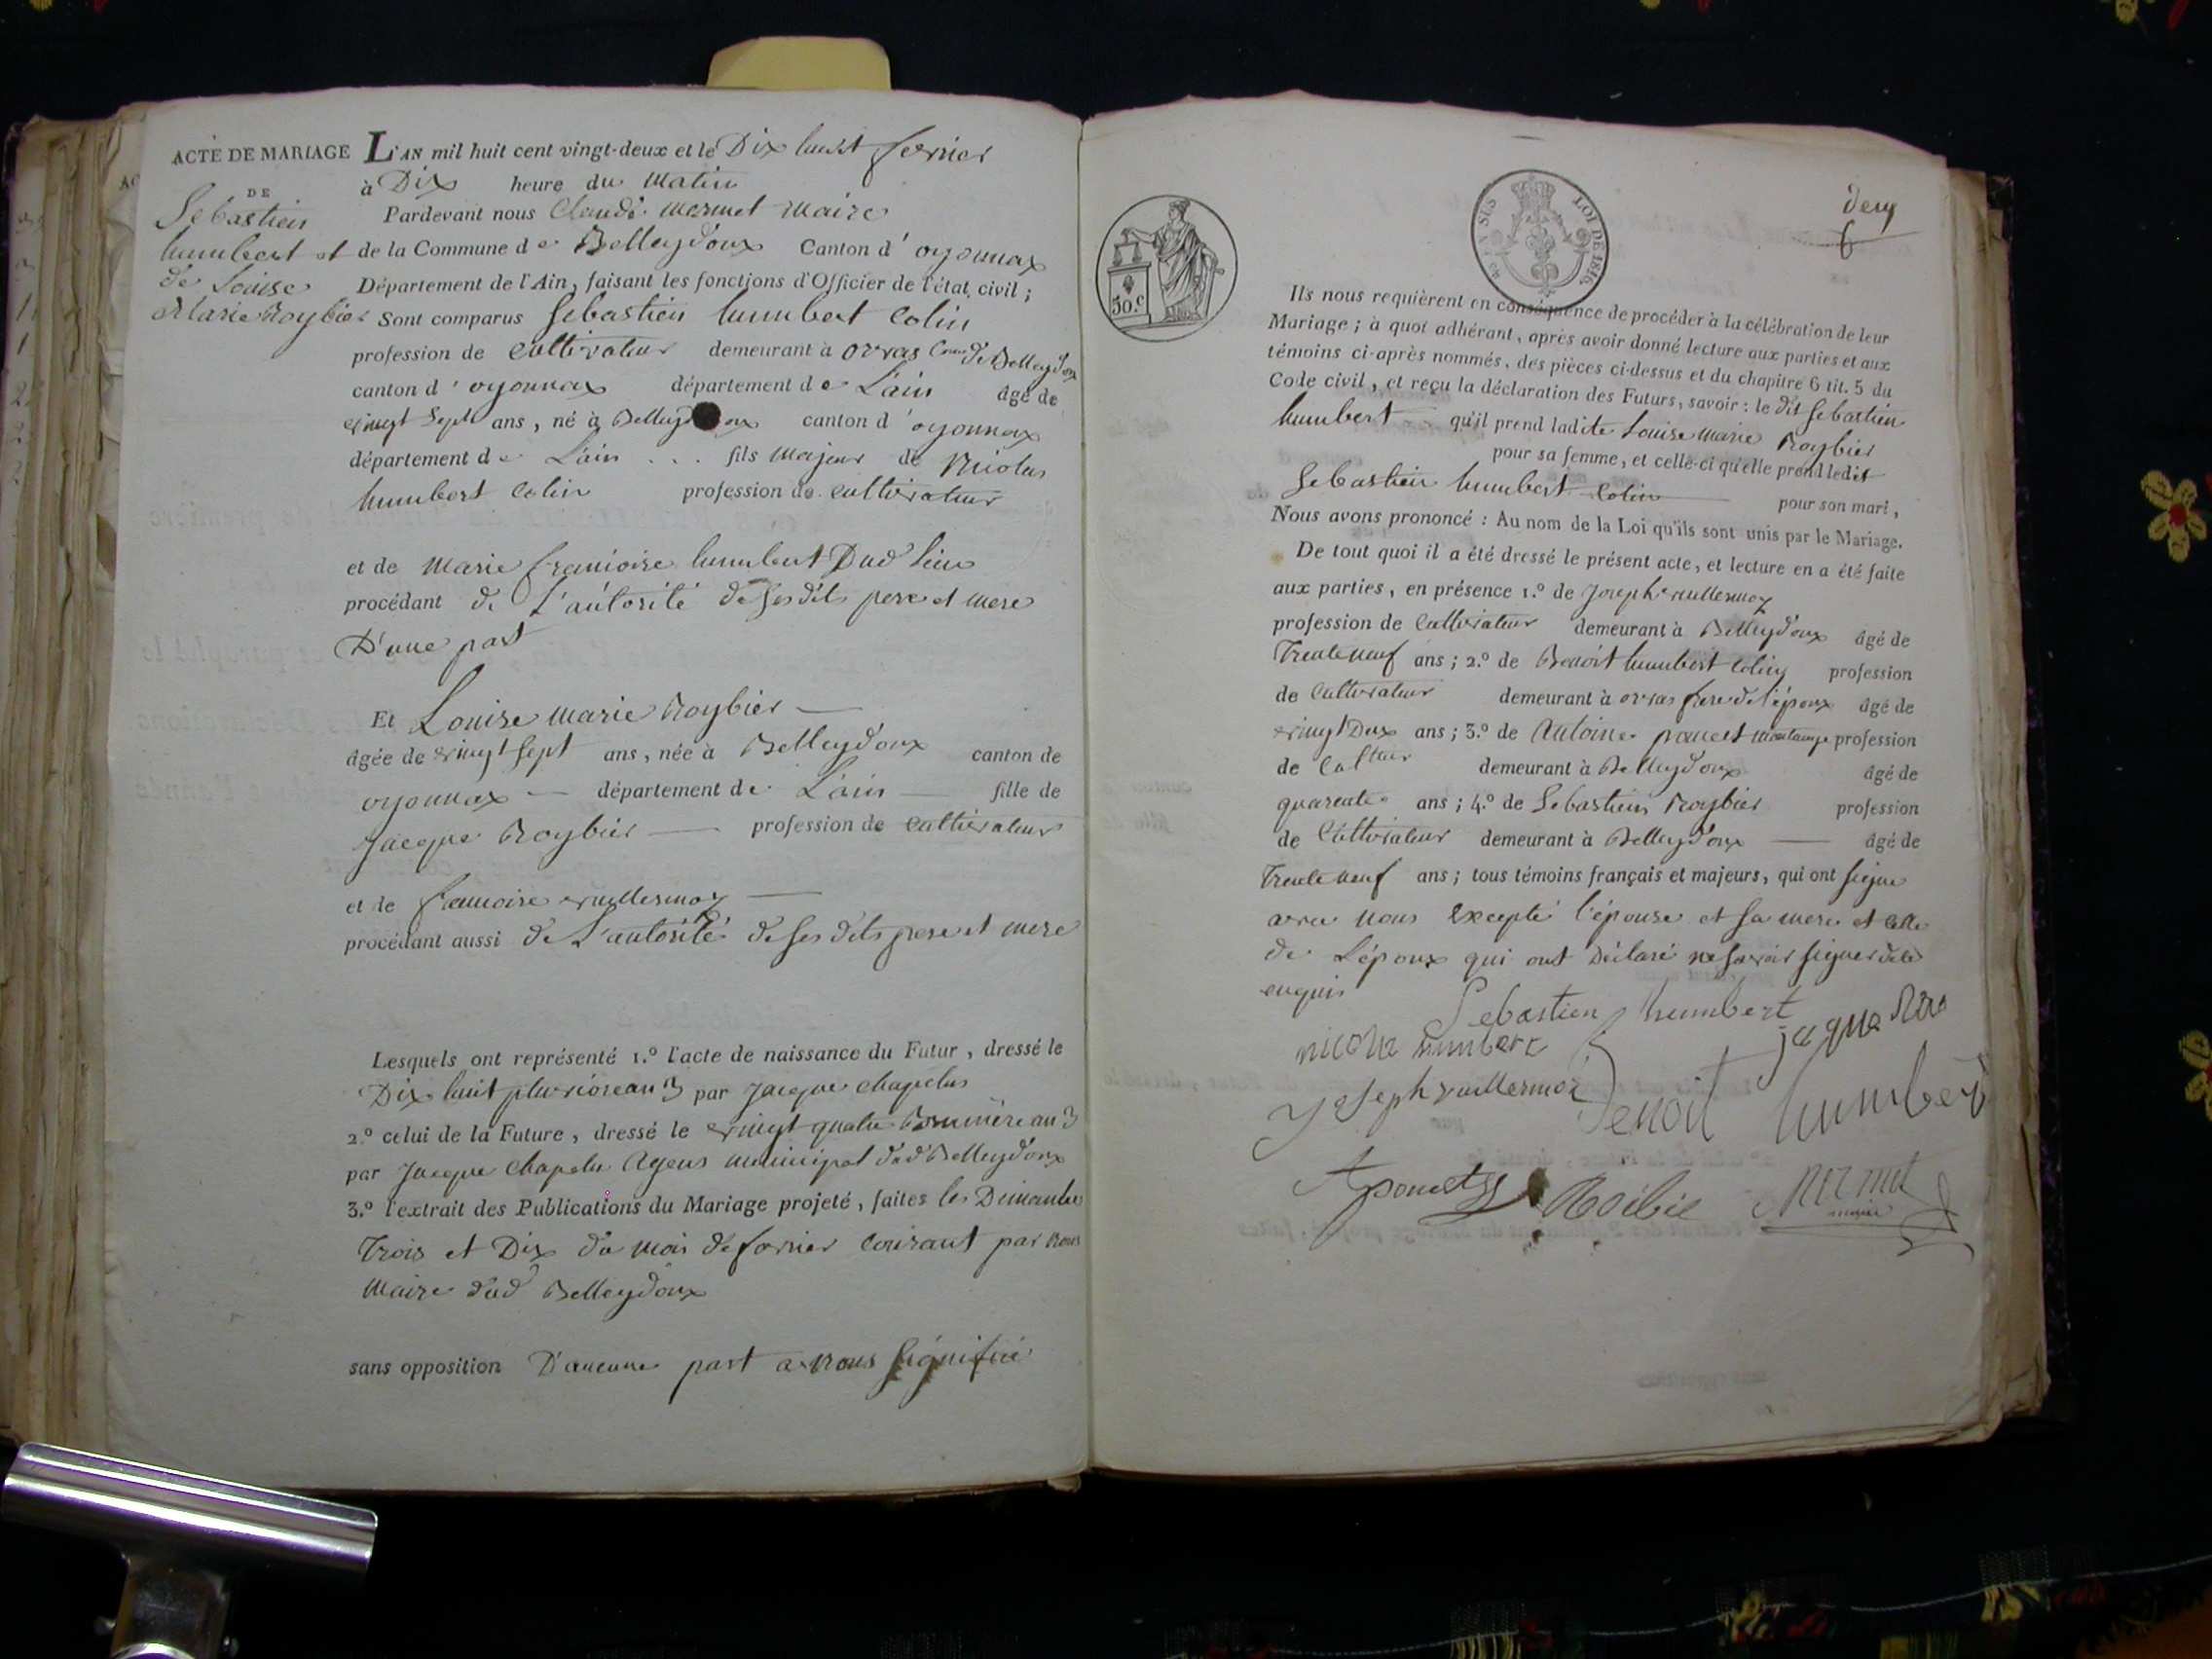 ACTE DE MARIAGE
DE
Sebastien
humbert et
de Louise
Marie Roybier
L'AN mil huit cent vingt-deux et le Dix huit fevrier
à Dix heure du Matin
Pardevant nous Claude Mermet Maire
de la Commune de Belleydoux Canton d'oyonnax
Département de l'Ain, faisant les fonctions d'Officier de l'état civil;
Sont comparus Sebastien humbert Colin
profession de Cultivateur demeurant à orvas Com de Belleydoux
canton d'oyonnax département de L'ain âgé de
vingt Sept ans, né à Belleydoux canton d'oyonnax
département de L'ain fils Majeur de Nicolas
humbert Colin profession de cultivateur
et de Marie francoise humbert Dud lieu
procédant de L'autorité de ses dits pere et mere
D'une part
Et Louise Marie Roybier
âgée de vingt sept ans, née à Belleydoux canton de
oyonnax département de L'ain fille de
Jacque Roybier profession de cultivateur
et de francoise vuillermoz
procédant aussi de L'autorité de ses dits pere et mere
Lesquels ont représenté 1.º l'acte de naissance du Futur, dressé le
Dix huit pluviose an 3 par Jacque Chapelus
2.º celui de la Future, dressé le vingt quatre Brumaire an 3
par Jacque Chapelu Agens Municipal dud Belleydoux
3.º l'extrait des Publications du Mariage projeté, faites les Dimanches
Trois et Dix du mois de fevrier courant par nous
Maire dud Belleydoux
sans opposition D'aucune part a nous Signifiée
50.c
LOI DE 1816
Ils nous requièrent en conséquence de procéder à la célébration de leur
Mariage; à quoi adhérant, après avoir donné lecture aux parties et aux
témoins ci-après nommés, des pièces ci-dessus et du chapitre 6 tit. 5 du
Code civil, et reçu la déclaration des Futurs, savoir: le dit Sebastien
humbert qu'il prend ladite Louise Marie Roybier
pour sa femme, et celle-ci qu'elle prend ledit
Sebastien humbert Colin pour son mari,
Nous avons prononcé: Au nom de la Loi qu'ils sont unis par le Mariage.
De tout quoi il a été dressé le présent acte, et lecture en a été faite
aux parties, en présence 1.º de Joseph vuillermoz
profession de Cultivateur demeurant à Belleydoux âgé de
Trente neuf ans; 2.º de Benoit humbert Colin profession
de Cultivateur demeurant à orvas frere de l'époux âgé de
vingt Deux ans; 3.º de Antoine poncet Montange profession
de Culteur demeurant à Belleydoux âgé de
quarente ans; 4.º de Sebastien Roybier profession
de Cultivateur demeurant à Belleydoux âgé de
Trente neuf ans; tous témoins français et majeurs, qui ont signe
avec nous Excepté l'épouse et sa mere et celle
de L'époux qui ont Déclaré ne savoir signer de ce
enquis
Sebastien humbert
nicola humbert
Joseph vuillermoz
Benoit humbert
Aponcet
Roibié
Mermet
maire